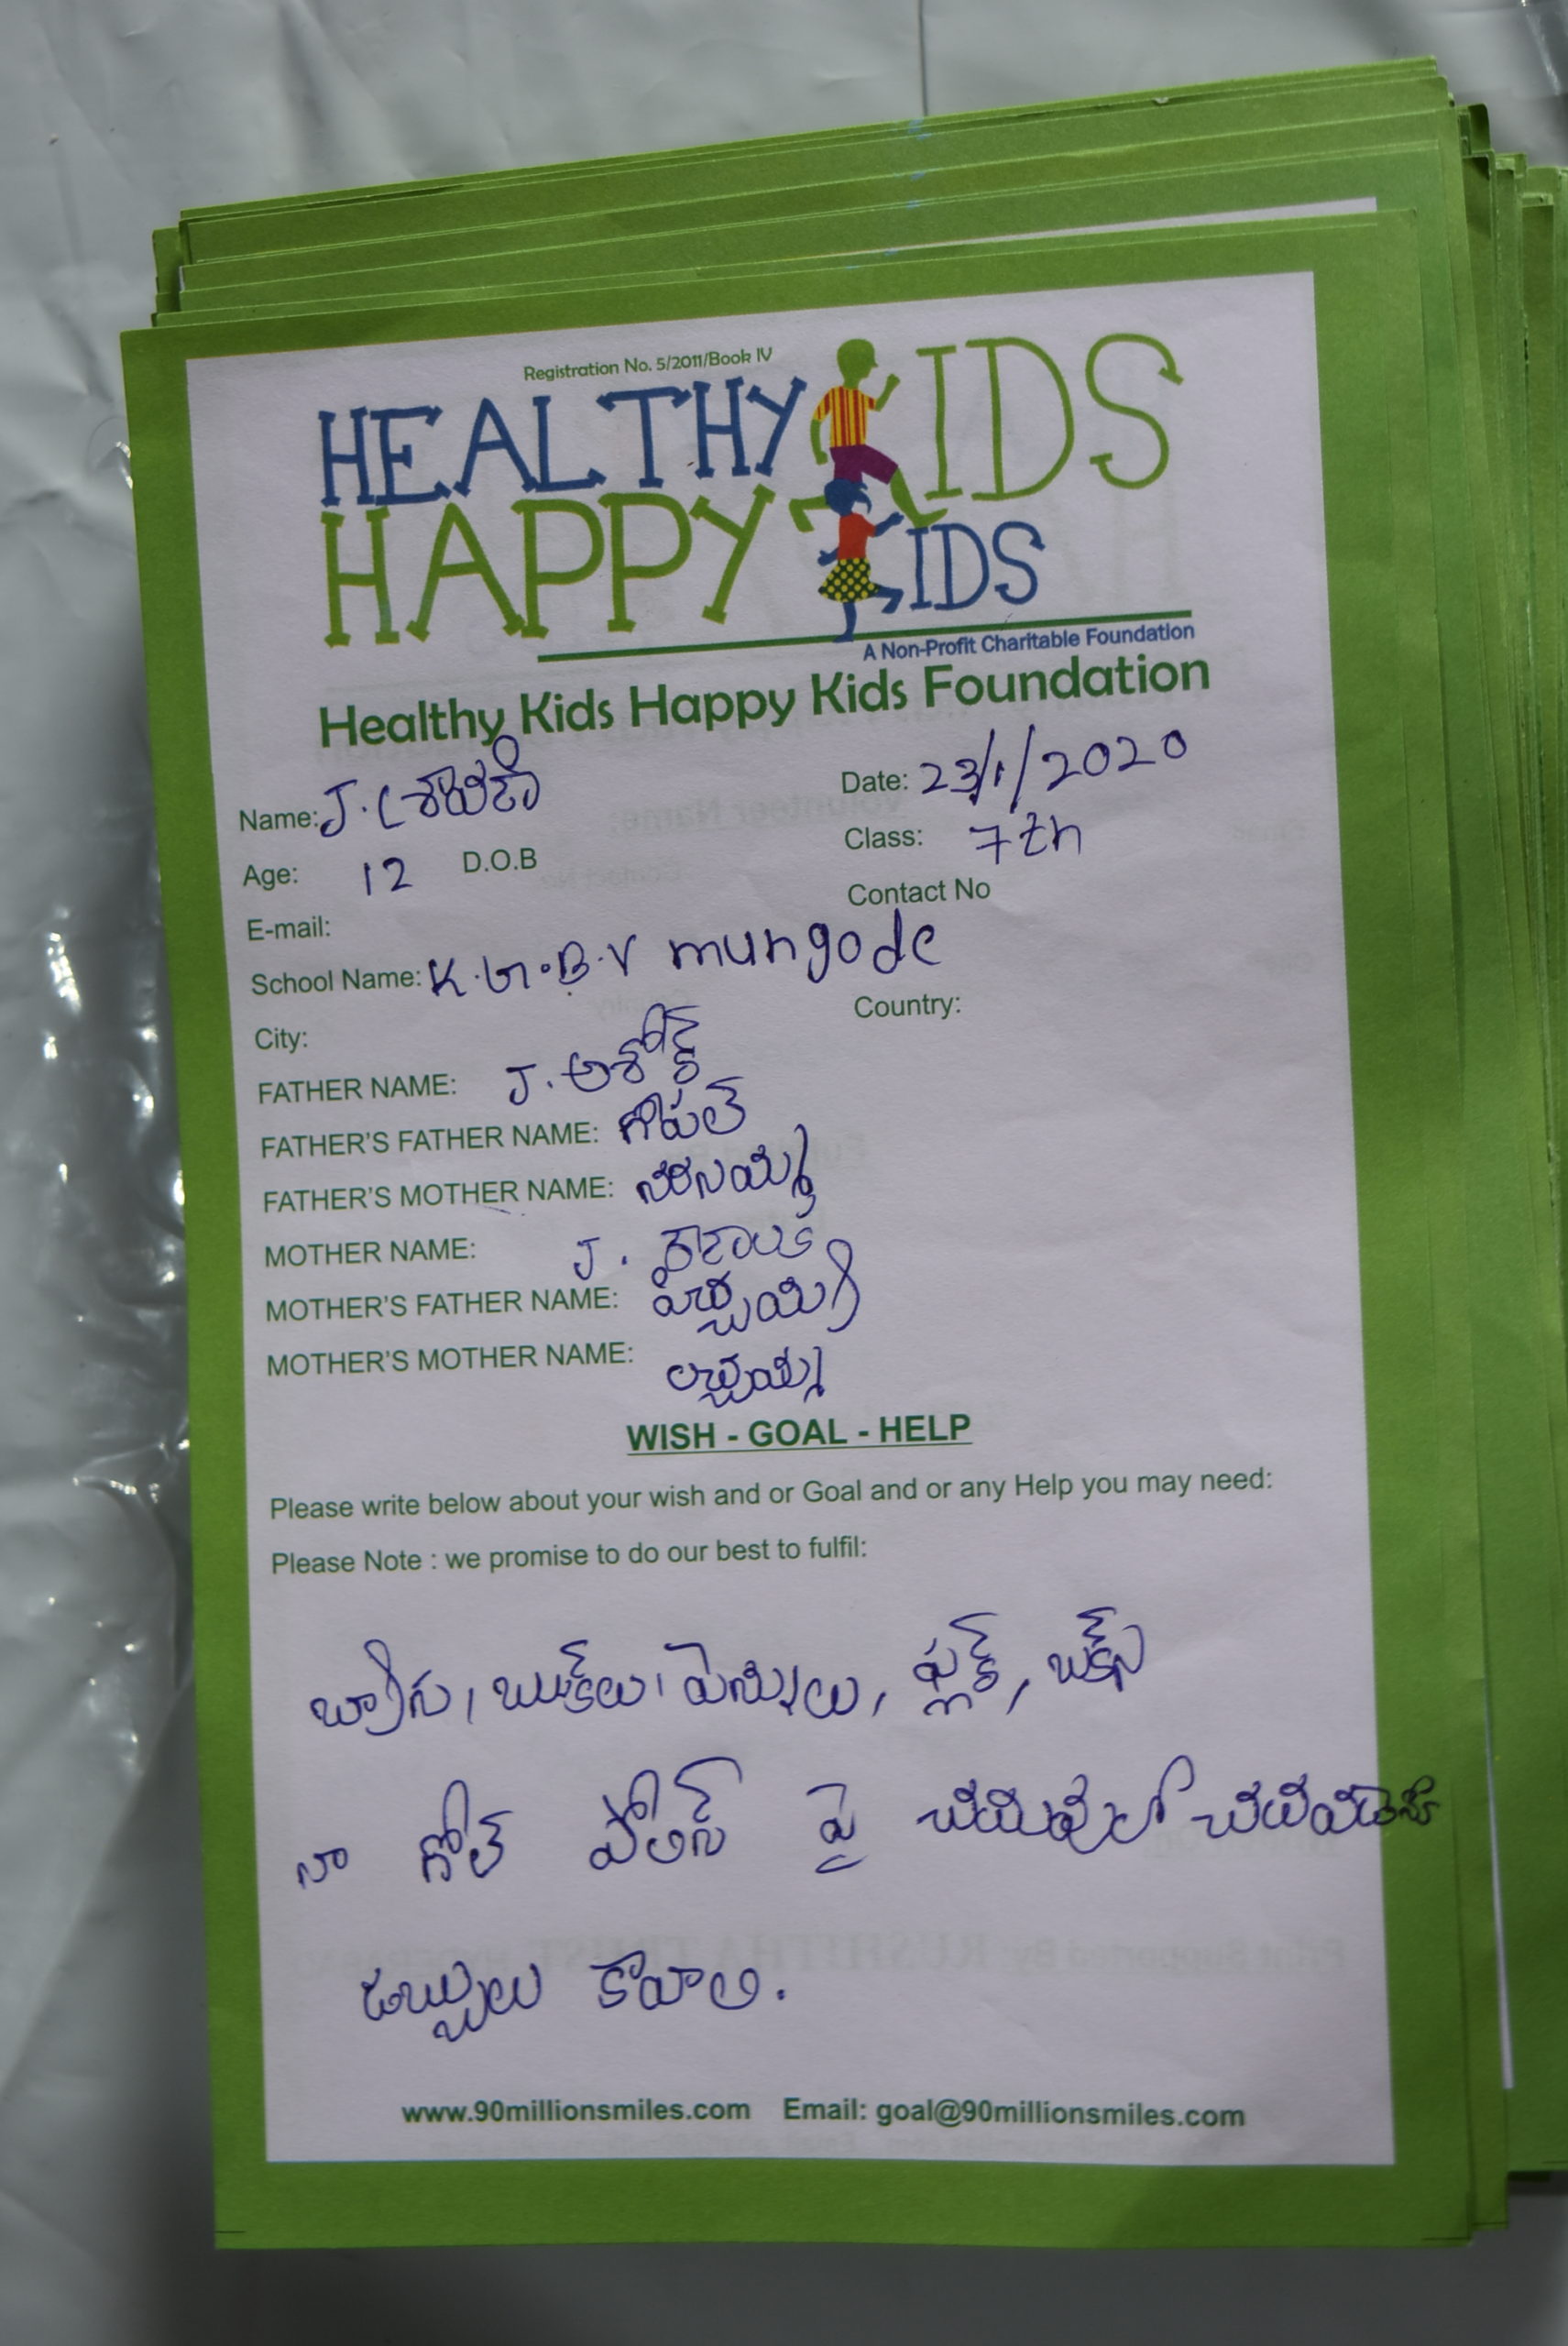 Registration No. 5/2011/Book IV
HEALTHY KIDS
HAPPY KIDS
A Non-Profit Charitable Foundation
Healthy Kids Happy Kids Foundation
Name: J. శ్రావణి Date: 23/1/2020
Age: 12 D.O.B Class: 7th
E-mail: Contact No
School Name: K.G.B.V mungode
City: Country:
FATHER NAME: J. అశోక్
FATHER'S FATHER NAME: గోపల్
FATHER'S MOTHER NAME:
MOTHER NAME: J.
MOTHER'S FATHER NAME:
MOTHER'S MOTHER NAME: లచ్చమ్మ
WISH - GOAL - HELP
Please write below about your wish and or Goal and or any Help you may need:
Please Note : we promise to do our best to fulfil:
బ్యాగ్స, బుక్‌లు, పెన్నులు,
నా గోల్ పోలిస్ పై
డబ్బులు కావాలి.
www.90millionsmiles.com Email: goal@90millionsmiles.com